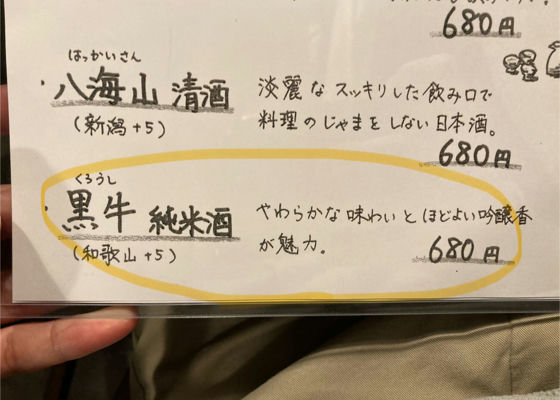 680円
はっかいさん
・八海山 清酒
(新潟+5)
淡麗なスッキリした飲み口で
料理のじゃまをしない日本酒。
680円
くろうし
・黒牛 純米酒
(和歌山+5)
やわらかな味わいとほどよい吟醸香
が魅力。
680円